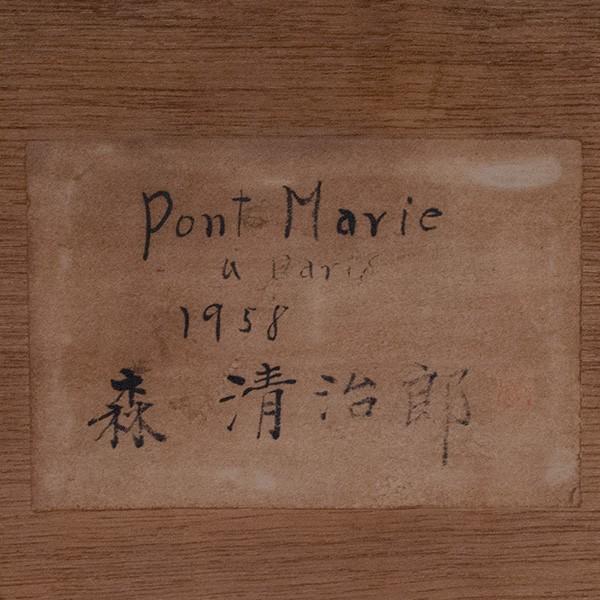 Pont Marie
a Paris
1958
森 清治郎